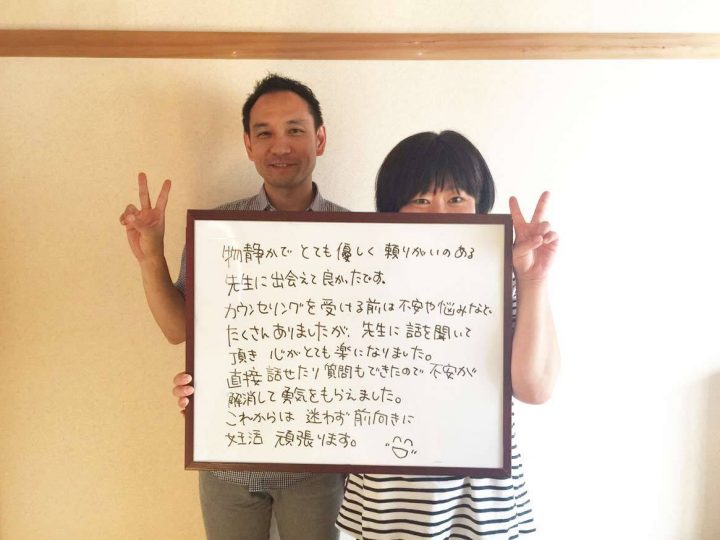 物静かで とても 優しく 頼りがいのある
先生に出会えて良かったです。
カウンセリングを受ける前は不安や悩みなど
たくさんありましたが、先生に話を聞いて
頂き 心がとても楽になりました。
直接話せたり質問もできたので不安が
解消して勇気をもらえました。
これからは 迷わず前向きに
妊活 頑張ります。